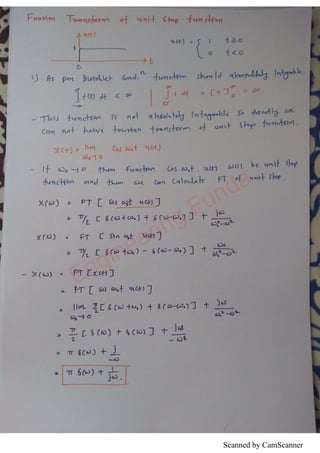 Fourier Transform of unit step function
u(t)
1
0
t
u(t) = { 1 t ≥ 0
0 t < 0
1) As per Dirichlet Cond.n function should absolutely Integrable.
∫_{-∞}^{∞} f(t) dt < ∞ | ∫_0^∞ 1 dt = [t]_0^∞ = ∞
- This function is not absolutely Integable so directly we
can not have fourier transform of unit step function.
x(t) = lim_{ω₀→0} Cos ω₀t u(t)
- If ω₀→0 then function Cos ω₀t . u(t) will be unit step
function and then we can calculate FT of unit step.
X(ω) = FT [ Cos ω₀t u(t) ]
= π/2 [ δ(ω+ω₀) + δ(ω-ω₀) ] + jω/(ω₀²-ω²)
x(ω) = FT [ Sin ω₀t u(t) ]
= π/2j [ δ(ω+ω₀) - δ(ω-ω₀) ] + ω₀/(ω₀²-ω²)
- X(ω) = FT [x(t)]
= FT [ Cos ω₀t u(t) ]
= lim_{ω₀→0} π/2 [ δ(ω+ω₀) + δ(ω-ω₀) ] + jω/(ω₀²-ω²)
= π/2 [ δ(ω) + δ(ω) ] + jω/-ω²
= π δ(ω) + j/-ω
= π δ(ω) + 1/jω .
Engineering Funda
Scanned by CamScanner